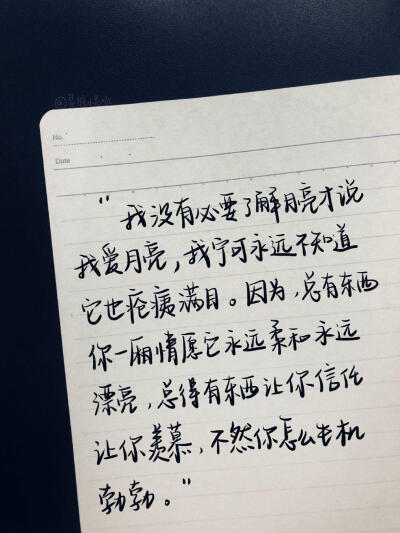 No.
Date
“我没有必要了解月亮才说
我爱月亮，我宁可永远不知道
它也疮痍满目。因为，总有东西
你一厢情愿它永远柔和永远
漂亮，总得有东西让你信任
让你羡慕，不然你怎么生机
勃勃。”